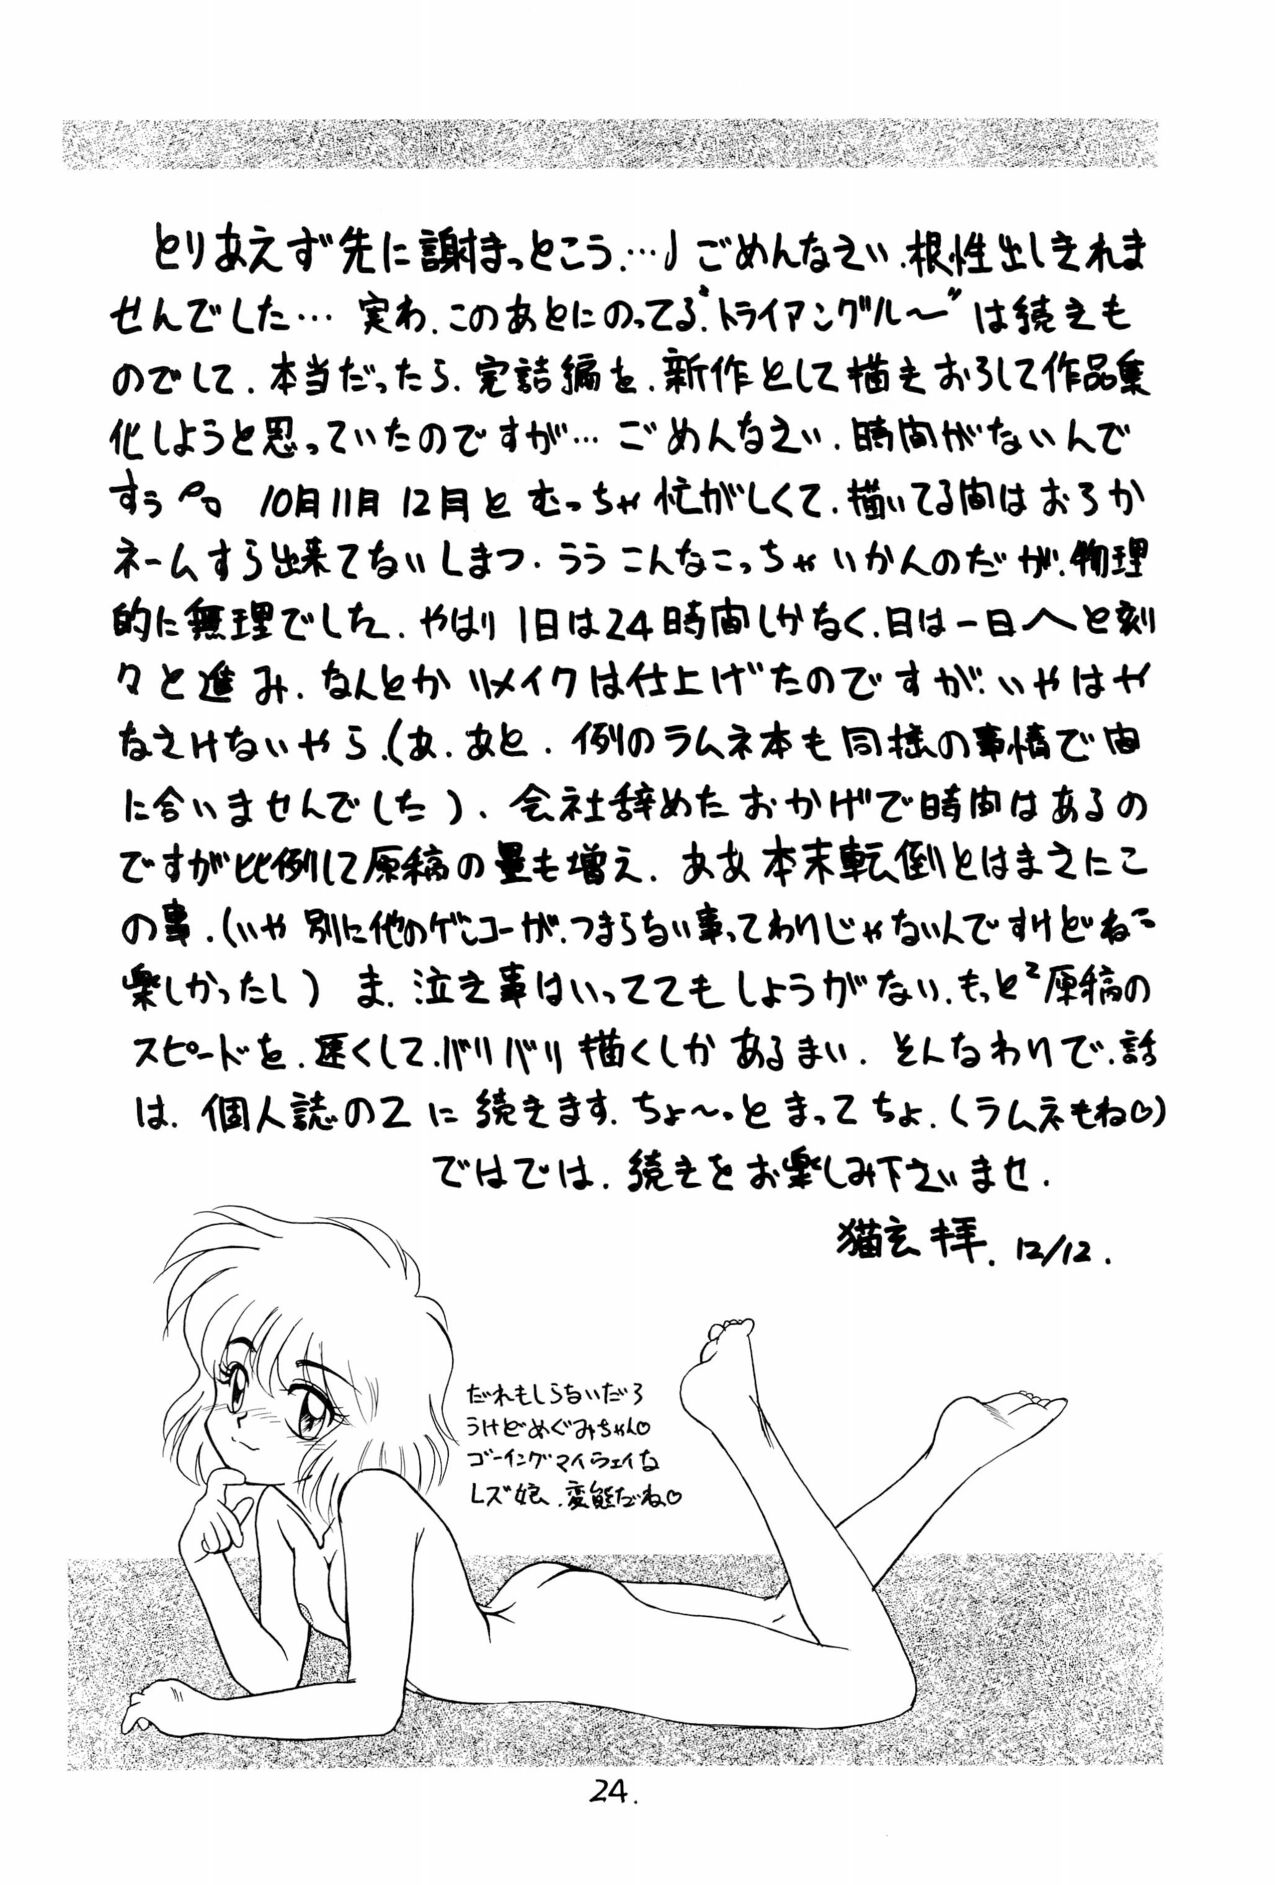 とりあえず先に謝まっとこう…♩ごめんなさい.根性出しきれま
せんでした… 実わ.このあとにのってる"トライアングル〜"は続きも
のでして.本当だったら.完詰編を.新作として描きおろして作品集
化しようと思っていたのですが… ごめんなさい.時間がないんで
すぅ 10月11月12月とむっちゃ忙がしくて.描いてる間はおろか
ネームすら出来てないしまつ.ううこんなこっちゃいかんのだが.物理
的に無理でした.やはり1日は24時間しかなく.日は一日へと刻
々と進み.なんとかリメイクは仕上げたのですが.いやはや
なさけないやら.(あ.あと.例のラムネ本も同様の事情で間
に合いませんでした).会社辞めたおかげで時間はあるの
ですが比例して原稿の量も増え.ああ本末転倒とはまさにこ
の事.(いや別に他のゲンコーが.つまらない事ってわけじゃないんですけどね
楽しかったし)ま.泣き事はいっててもしょうがない.もっと²原稿の
スピードを.速くして.バリバリ描くしかあるまい.そんなわけで.話
は.個人誌の2に続きます.ちょ〜っとまってちょ.(ラムネもね♡)
ではでは.続きをお楽しみ下さいませ.
猫玄 拝.12/12.
だれもしらないだろ
うけどめぐみちゃん♡
ゴーイングマイウェイな
レズ娘.変態だね♡
24.